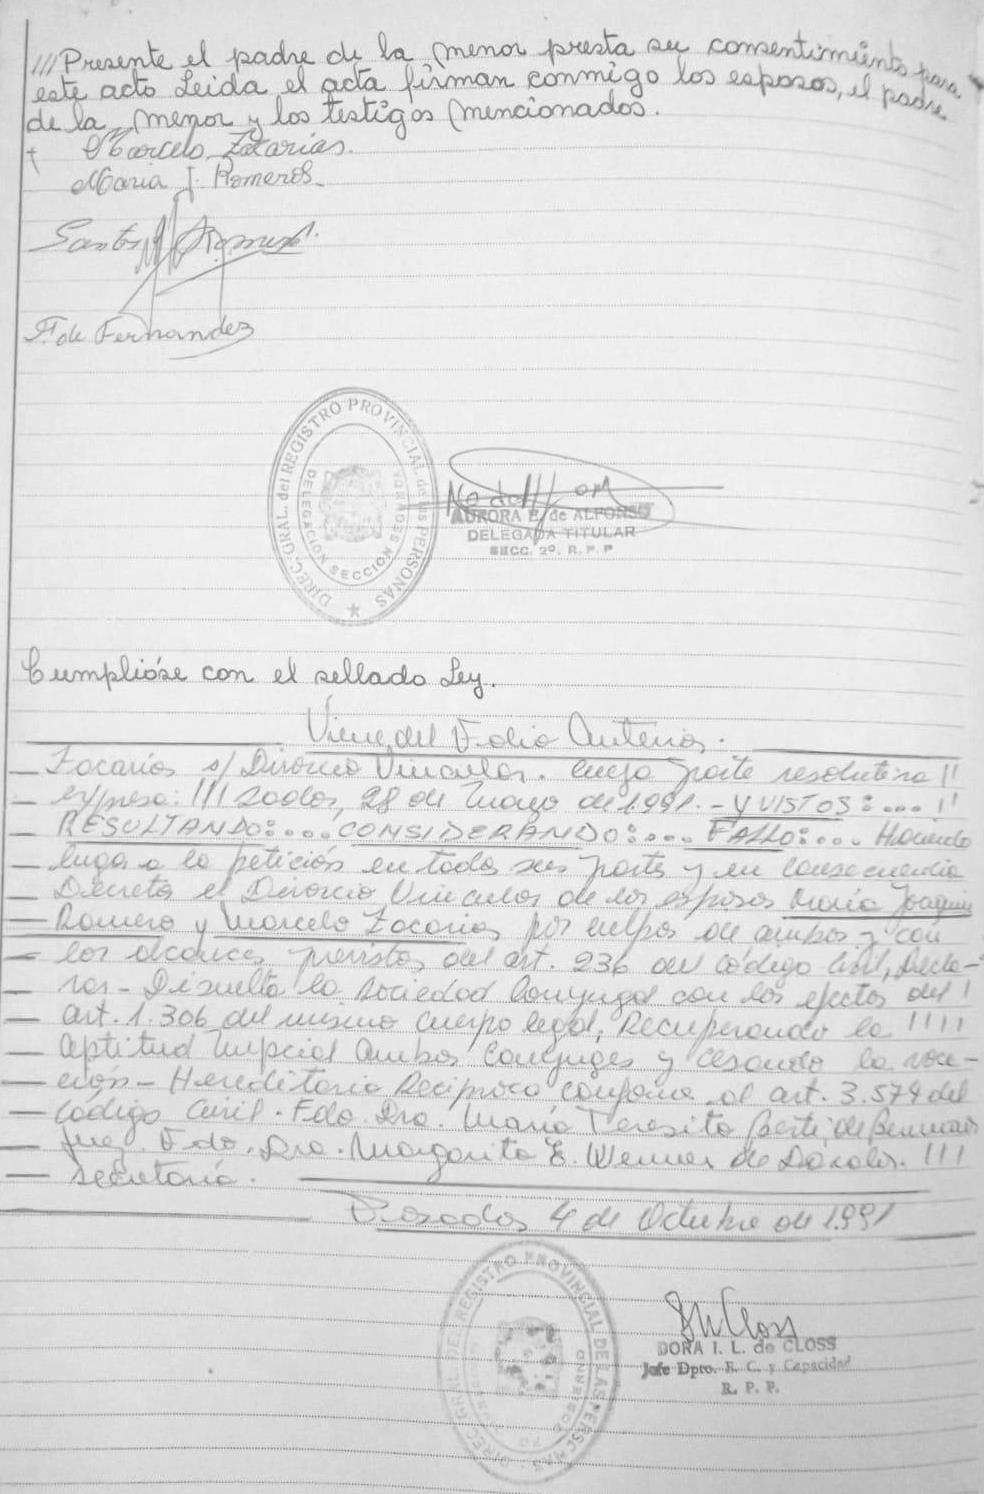 ///Presente el padre de la menor presta su consentimiento para
este acto Leida el acta firman conmigo los esposos, el padre
de la menor y los testigos mencionados.
Marcelo Zacarias.
Maria J. Romeros
Santos
F. de Fernandez
DIREC. GRAL. del REGISTRO PROVINCIAL de las PERSONAS
DELEGACION SECCION SEGUNDA
AURORA E. de ALFONSO
DELEGADA TITULAR
SECC. 2º. R. P. P
Cumplióse con el sellado Ley.
Viene del Folio Anterior.
Zacarias s/ Divorcio Vincular. Cuya parte resolutiva !!
expresa: !!! sadas, 28 de Mayo de 1.991.- Y VISTOS:... !!
RESULTANDO:... CONSIDERANDO:... FALLO:... Haciendo
lugar a la petición en todas sus parts y en consecuencia
Decreta el Divorcio Vincular de los esposos María Joaquina
Romero y Marcelo Zacarias por culpa de ambos y con
los alcances previstos del art. 236 del Código Civil, Decla-
rar- Disuelta la sociedad Conyugal con los efectos del !
art. 1.306 del mismo cuerpo legal, Recuperando la !!!!
Aptitud Nupcial Ambos Conyuges y cesando la voca-
ción- Hereditaria Reciproca conforme al art. 3.574 del
Código Civil. Fdo. Dra. María Teresita
Juez. Fdo. Dra. Margarita E. de !!!
Secretaria.
Posadas 4 de Octubre de 1.991
DIREC. GRAL. DEL REGISTRO PROVINCIAL DE LAS PERSONAS
DORA I. L. de CLOSS
Jefe Dpto. E. C. y Capacidad
R. P. P.